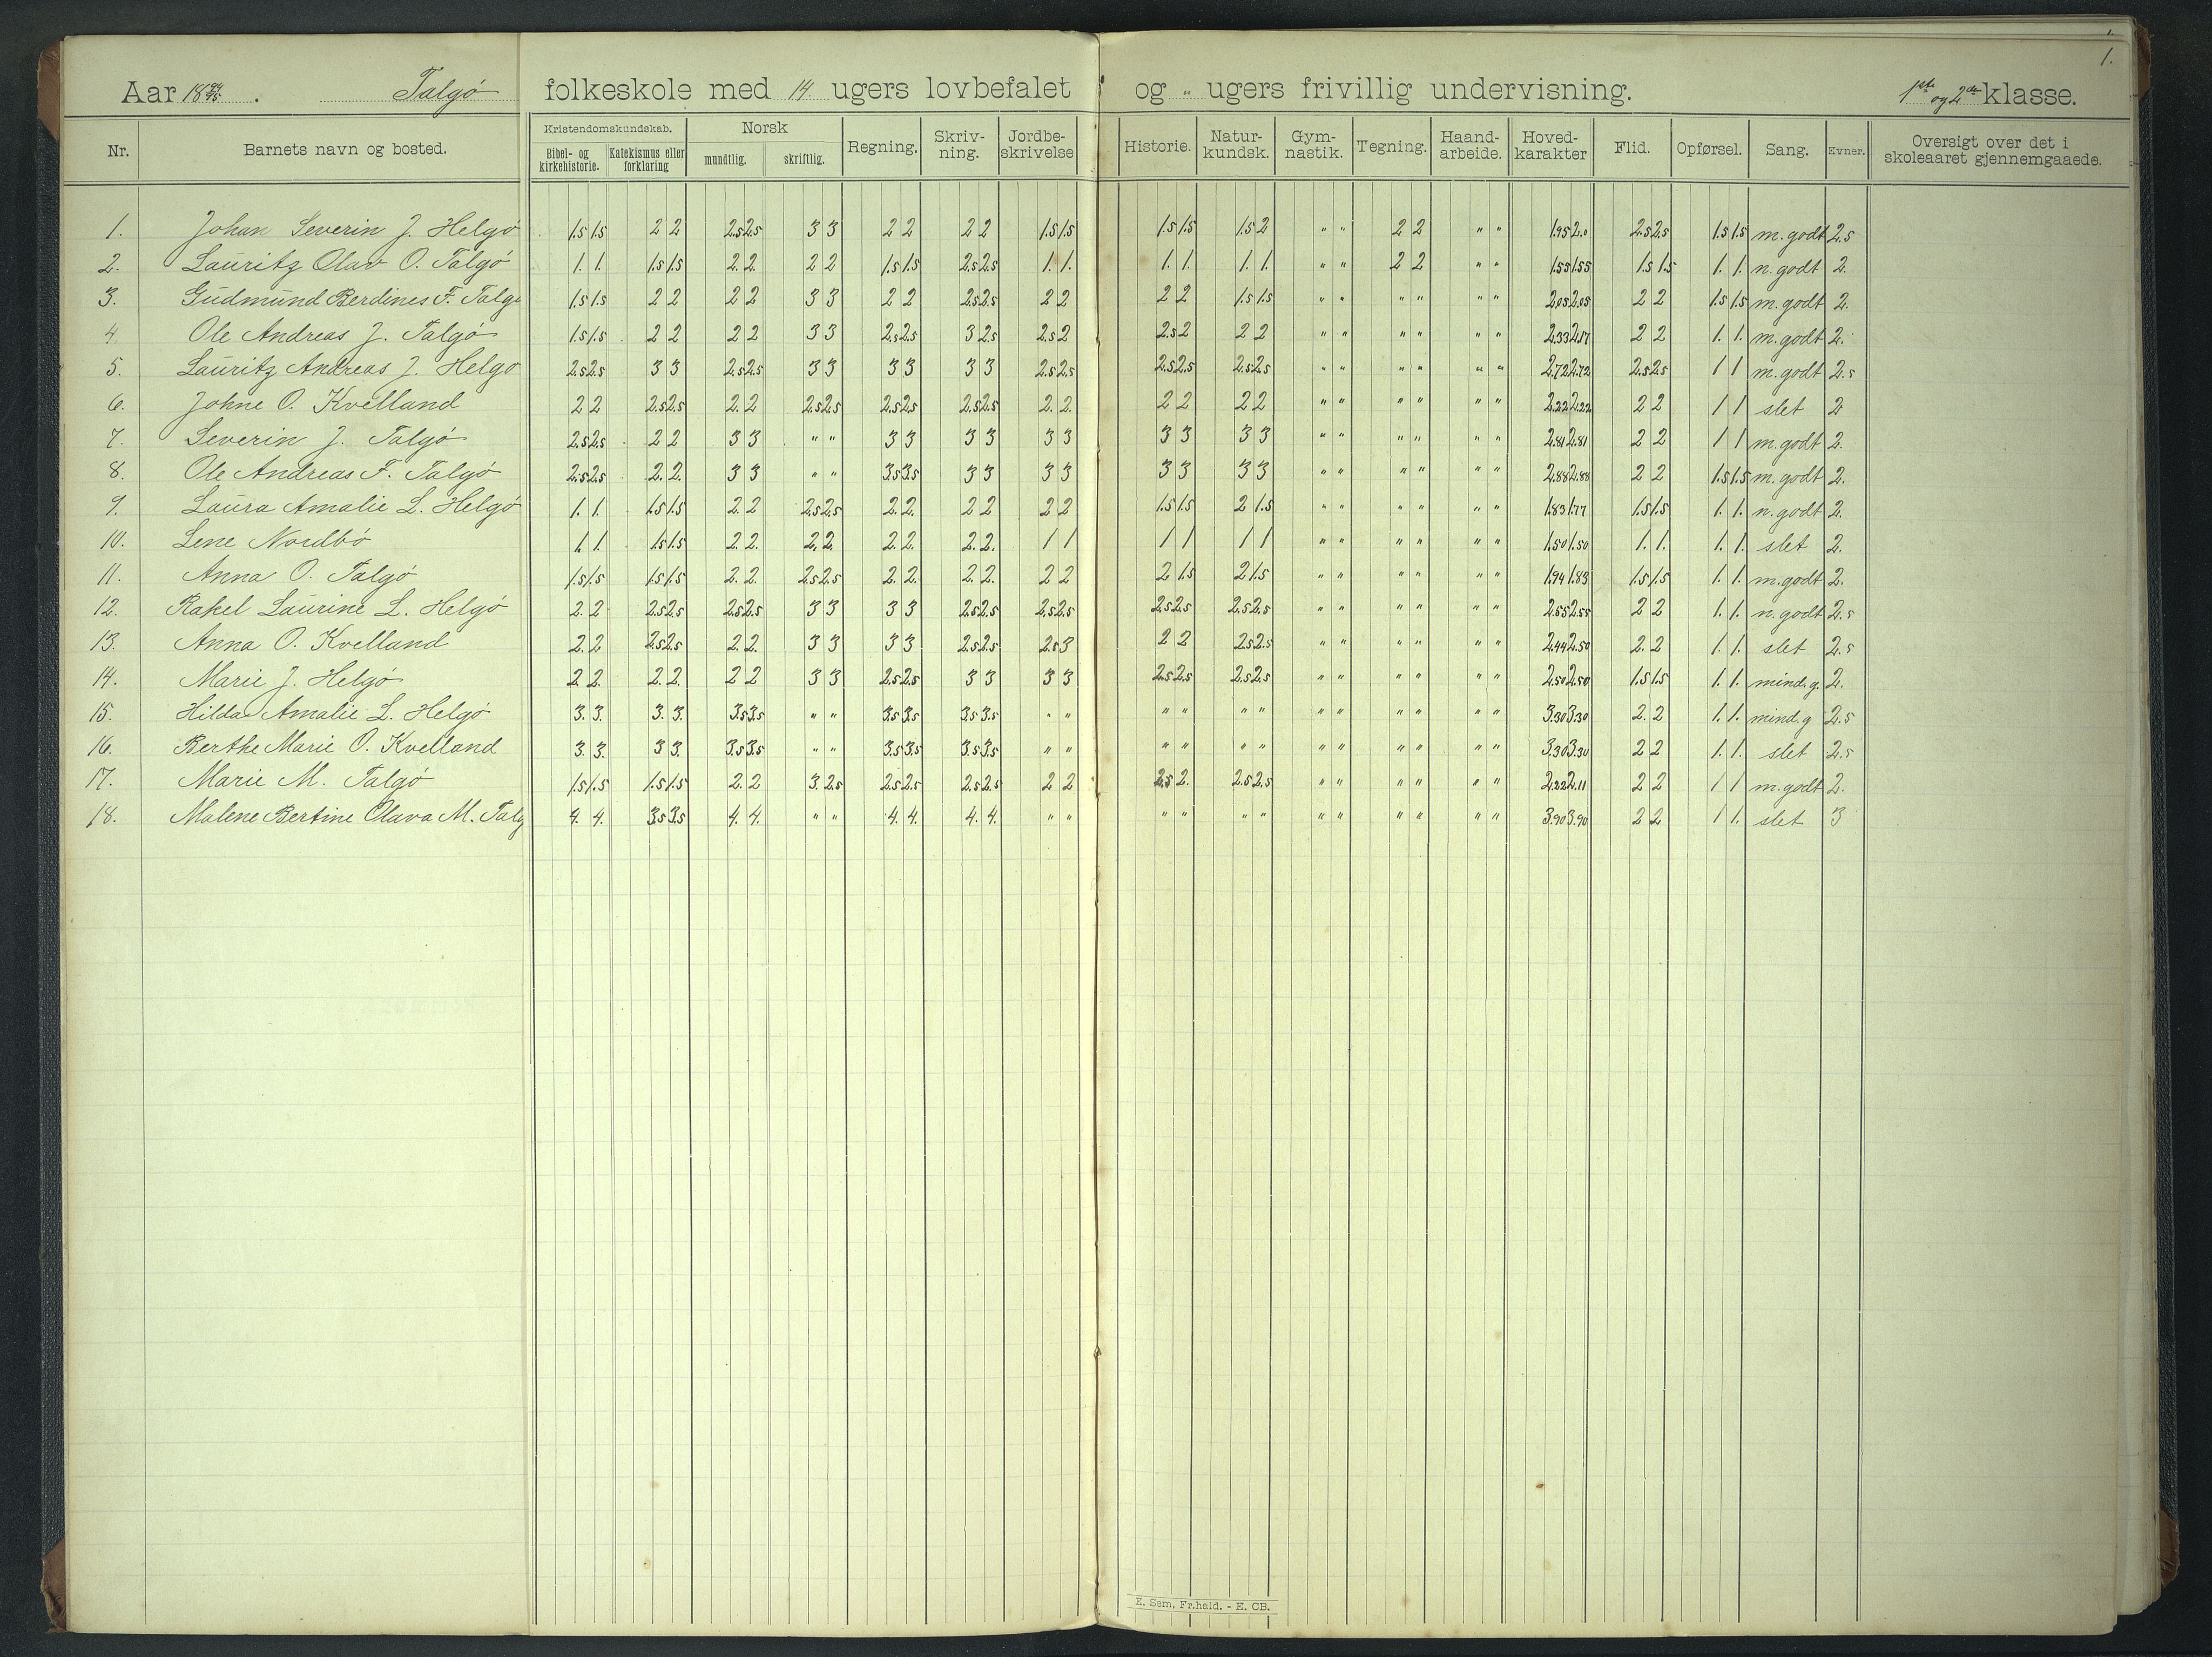 1.
Aar 18 94/95. Talgö folkeskole med 14 ugers lovbefalet og " ugers frivillig undervisning. 1ste og 2den klasse.
Nr. Barnets navn og bosted. Kristendomskundskab. Bibel- og kirkehistorie. Katekismus eller forklaring Norsk mundtlig. skriftlig. Regning. Skriv-ning. Jordbe-skrivelse Historie. Natur-kundsk. Gym-nastik. Tegning. Haand-arbeide. Hoved-karakter Flid. Opførsel. Sang. Evner. Oversigt over det i skoleaaret gjennemgaaede.
1. Johan Severin J. Helgö 1.5 1.5 2 2 2.5 2.5 3 3 2 2 2 2 1.5 1.5 1.5 1.5 1.5 2 " " 2 2 " " 1.95 2.0 2.5 2.5 1.5 1.5 m. godt 2.5
2. Lauritz Olav O. Talgö 1. 1. 1.5 1.5 2. 2. 2 2 1.5 1.5 2.5 2.5 1. 1. 1. 1. 1. 1. " " 2 2 " " 1.55 1.55 1.5 1.5 1. 1. n. godt 2.
3. Gudmund Berdines F. Talgö 1.5 1.5 2 2 2 2 3 3 2 2 2.5 2.5 2 2 2 2 1.5 1.5 " " " " " " 2.05 2.05 2 2 1.5 1.5 m. godt 2.
4. Ole Andreas J. Talgö 1.5 1.5 2 2 2 2 3 3 2.5 2.5 3 2.5 2.5 2 2.5 2 2 2 " " " " " " 2.33 2.17 2 2 1. 1. m. godt 2.
5. Lauritz Andreas J. Helgö 2.5 2.5 3 3 2.5 2.5 3 3 3 3 3 3 2.5 2.5 2.5 2.5 2.5 2.5 " " " " " " 2.72 2.72 2.5 2.5 1 1 m. godt 2.5
6. Johne O. Kvelland 2 2 2.5 2.5 2. 2 2.5 2.5 2.5 2.5 2.5 2.5 2. 2. 2 2 2 2 " " " " " " 2.22 2.22 2 2 1 1 slet 2
7. Severin J. Talgö 2.5 2.5 2 2 3 3 " " 3 3 3 3 3 3 3 3 3 3 " " " " " " 2.81 2.81 2 2 1 1 m. godt 2.
8. Ole Andreas F. Talgö 2.5 2.5 2. 2. 3 3 " " 3.5 3.5 3 3 3 3 3 3 3 3 " " " " " " 2.88 2.88 2 2 1.5 1.5 m. godt 2.
9. Laura Amalie L. Helgö 1. 1. 1.5 1.5 2. 2 2.5 2.5 2. 2. 2 2 2 2 1.5 1.5 2 1.5 " " " " " " 1.83 1.77 1.5 1.5 1. 1. n. godt 2.
10. Lene Nordbö 1. 1. 1.5 1.5 2. 2. 2. 2. 2. 2. 2. 2. 1 1 1 1 1 1 " " " " " " 1.50 1.50 1. 1. 1. 1. slet 2.
11. Anna O. Talgö 1.5 1.5 1.5 1.5 2. 2. 2.5 2.5 2. 2. 2. 2. 2 2 2 1.5 2 1.5 " " " " " " 1.94 1.83 1.5 1.5 1. 1. m. godt 2.
12. Rakel Laurine L. Helgö 2. 2 2.5 2.5 2.5 2.5 3 3 3 3 2.5 2.5 2.5 2.5 2.5 2.5 2.5 2.5 " " " " " " 2.55 2.55 2 2 1. 1. n. godt 2.5
13. Anna O. Kvelland 2. 2 2.5 2.5 2. 2. 3 3 3 3 2.5 2.5 2.5 3 2 2 2.5 2.5 " " " " " " 2.44 2.50 2. 2 1. 1. slet 2.5
14. Marie J. Helgö 2. 2. 2. 2. 2 2 3 3 2.5 2.5 3 3 3 3 2.5 2.5 2.5 2.5 " " " " " " 2.50 2.50 1.5 1.5 1. 1. mind. g. 2.
15. Hilda Amalie L. Helgö 3. 3. 3. 3. 3.5 3.5 " " 3.5 3.5 3.5 3.5 " " " " " " " " " " " " 3.30 3.30 2. 2 1. 1. mind. g 2.5
16. Berthe Marie O. Kvelland 3. 3. 3 3. 3.5 3.5 " " 3.5 3.5 3.5 3.5 " " " " " " " " " " " " 3.30 3.30 2 2 1. 1. slet 2.5
17. Marie M. Talgö 1.5 1.5 1.5 1.5 2. 2 3. 2.5 2.5 2.5 2.5 2.5 2 2 2.5 2. 2.5 2.5 " " " " " " 2.22 2.11 2 2 1 1 m. godt 2.
18. Malene Bertine Olava M. Talg 4. 4. 3.5 3.5 4. 4. " " 4. 4. 4. 4. " " " " " " " " " " " " 3.90 3.90 2 2 1 1. slet 3
E. Sem, Fr.hald. - E. CB.